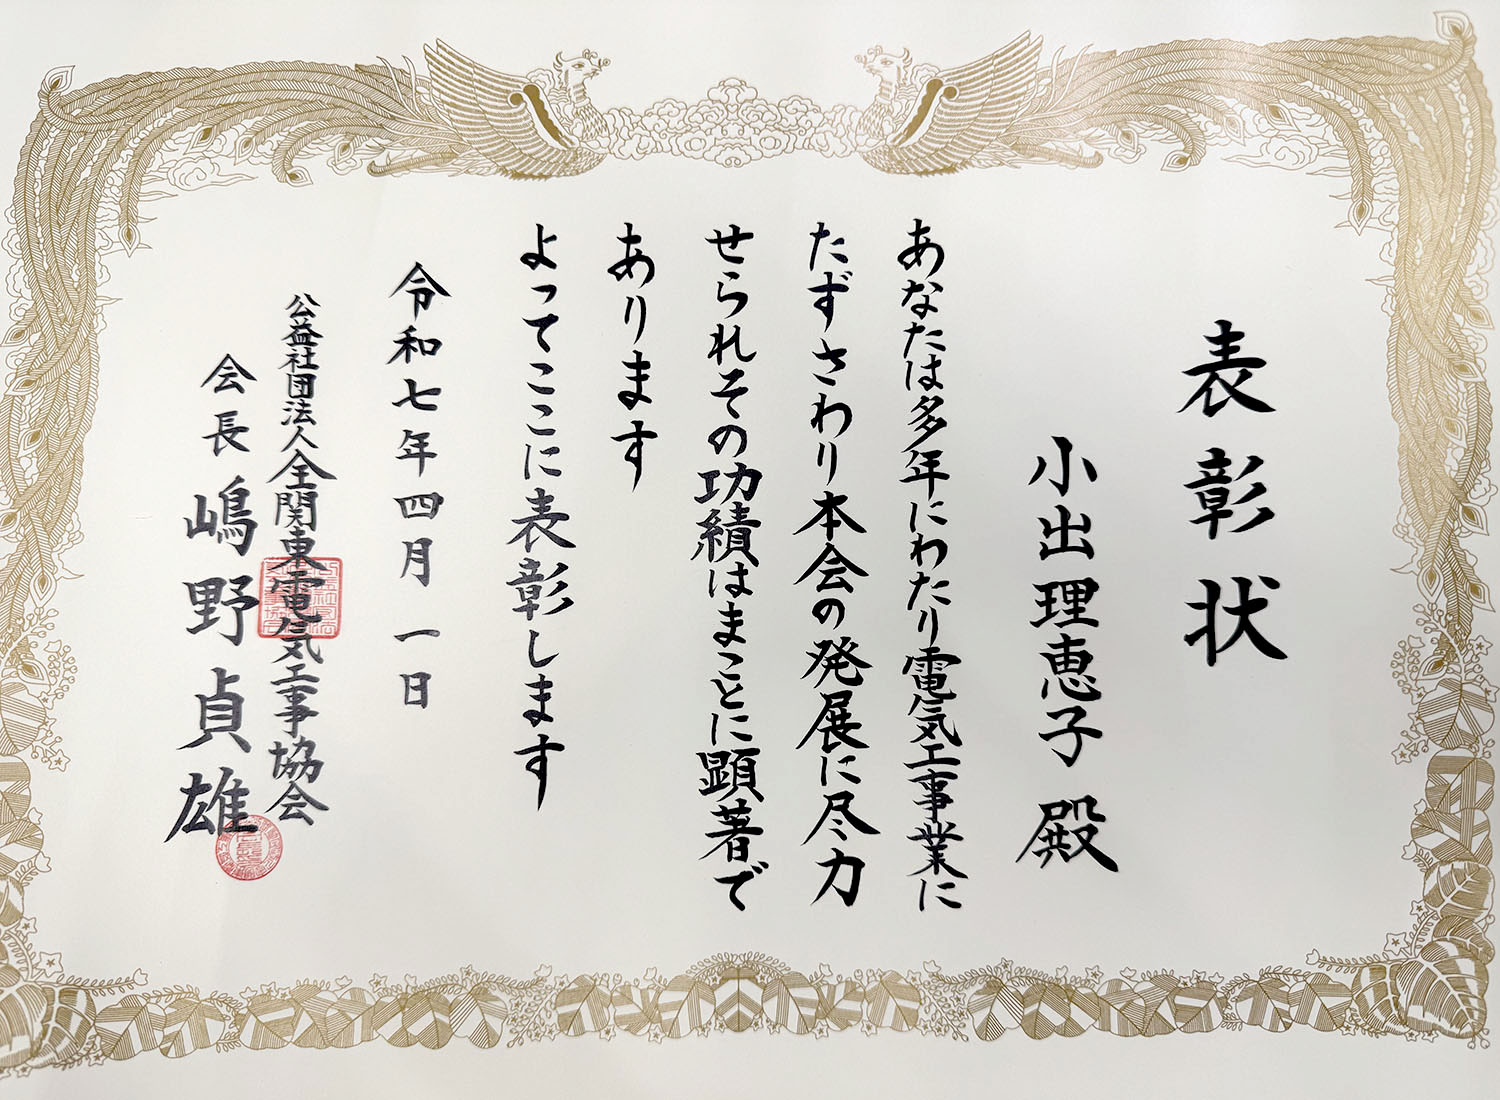 表彰状
小出理恵子 殿
あなたは多年にわたり電気工事業に
たずさわり本会の発展に尽力
せられその功績はまことに顕著で
あります
よってここに表彰します
令和七年四月一日
公益社団法人全関東電気工事協会
会長 嶋野貞雄